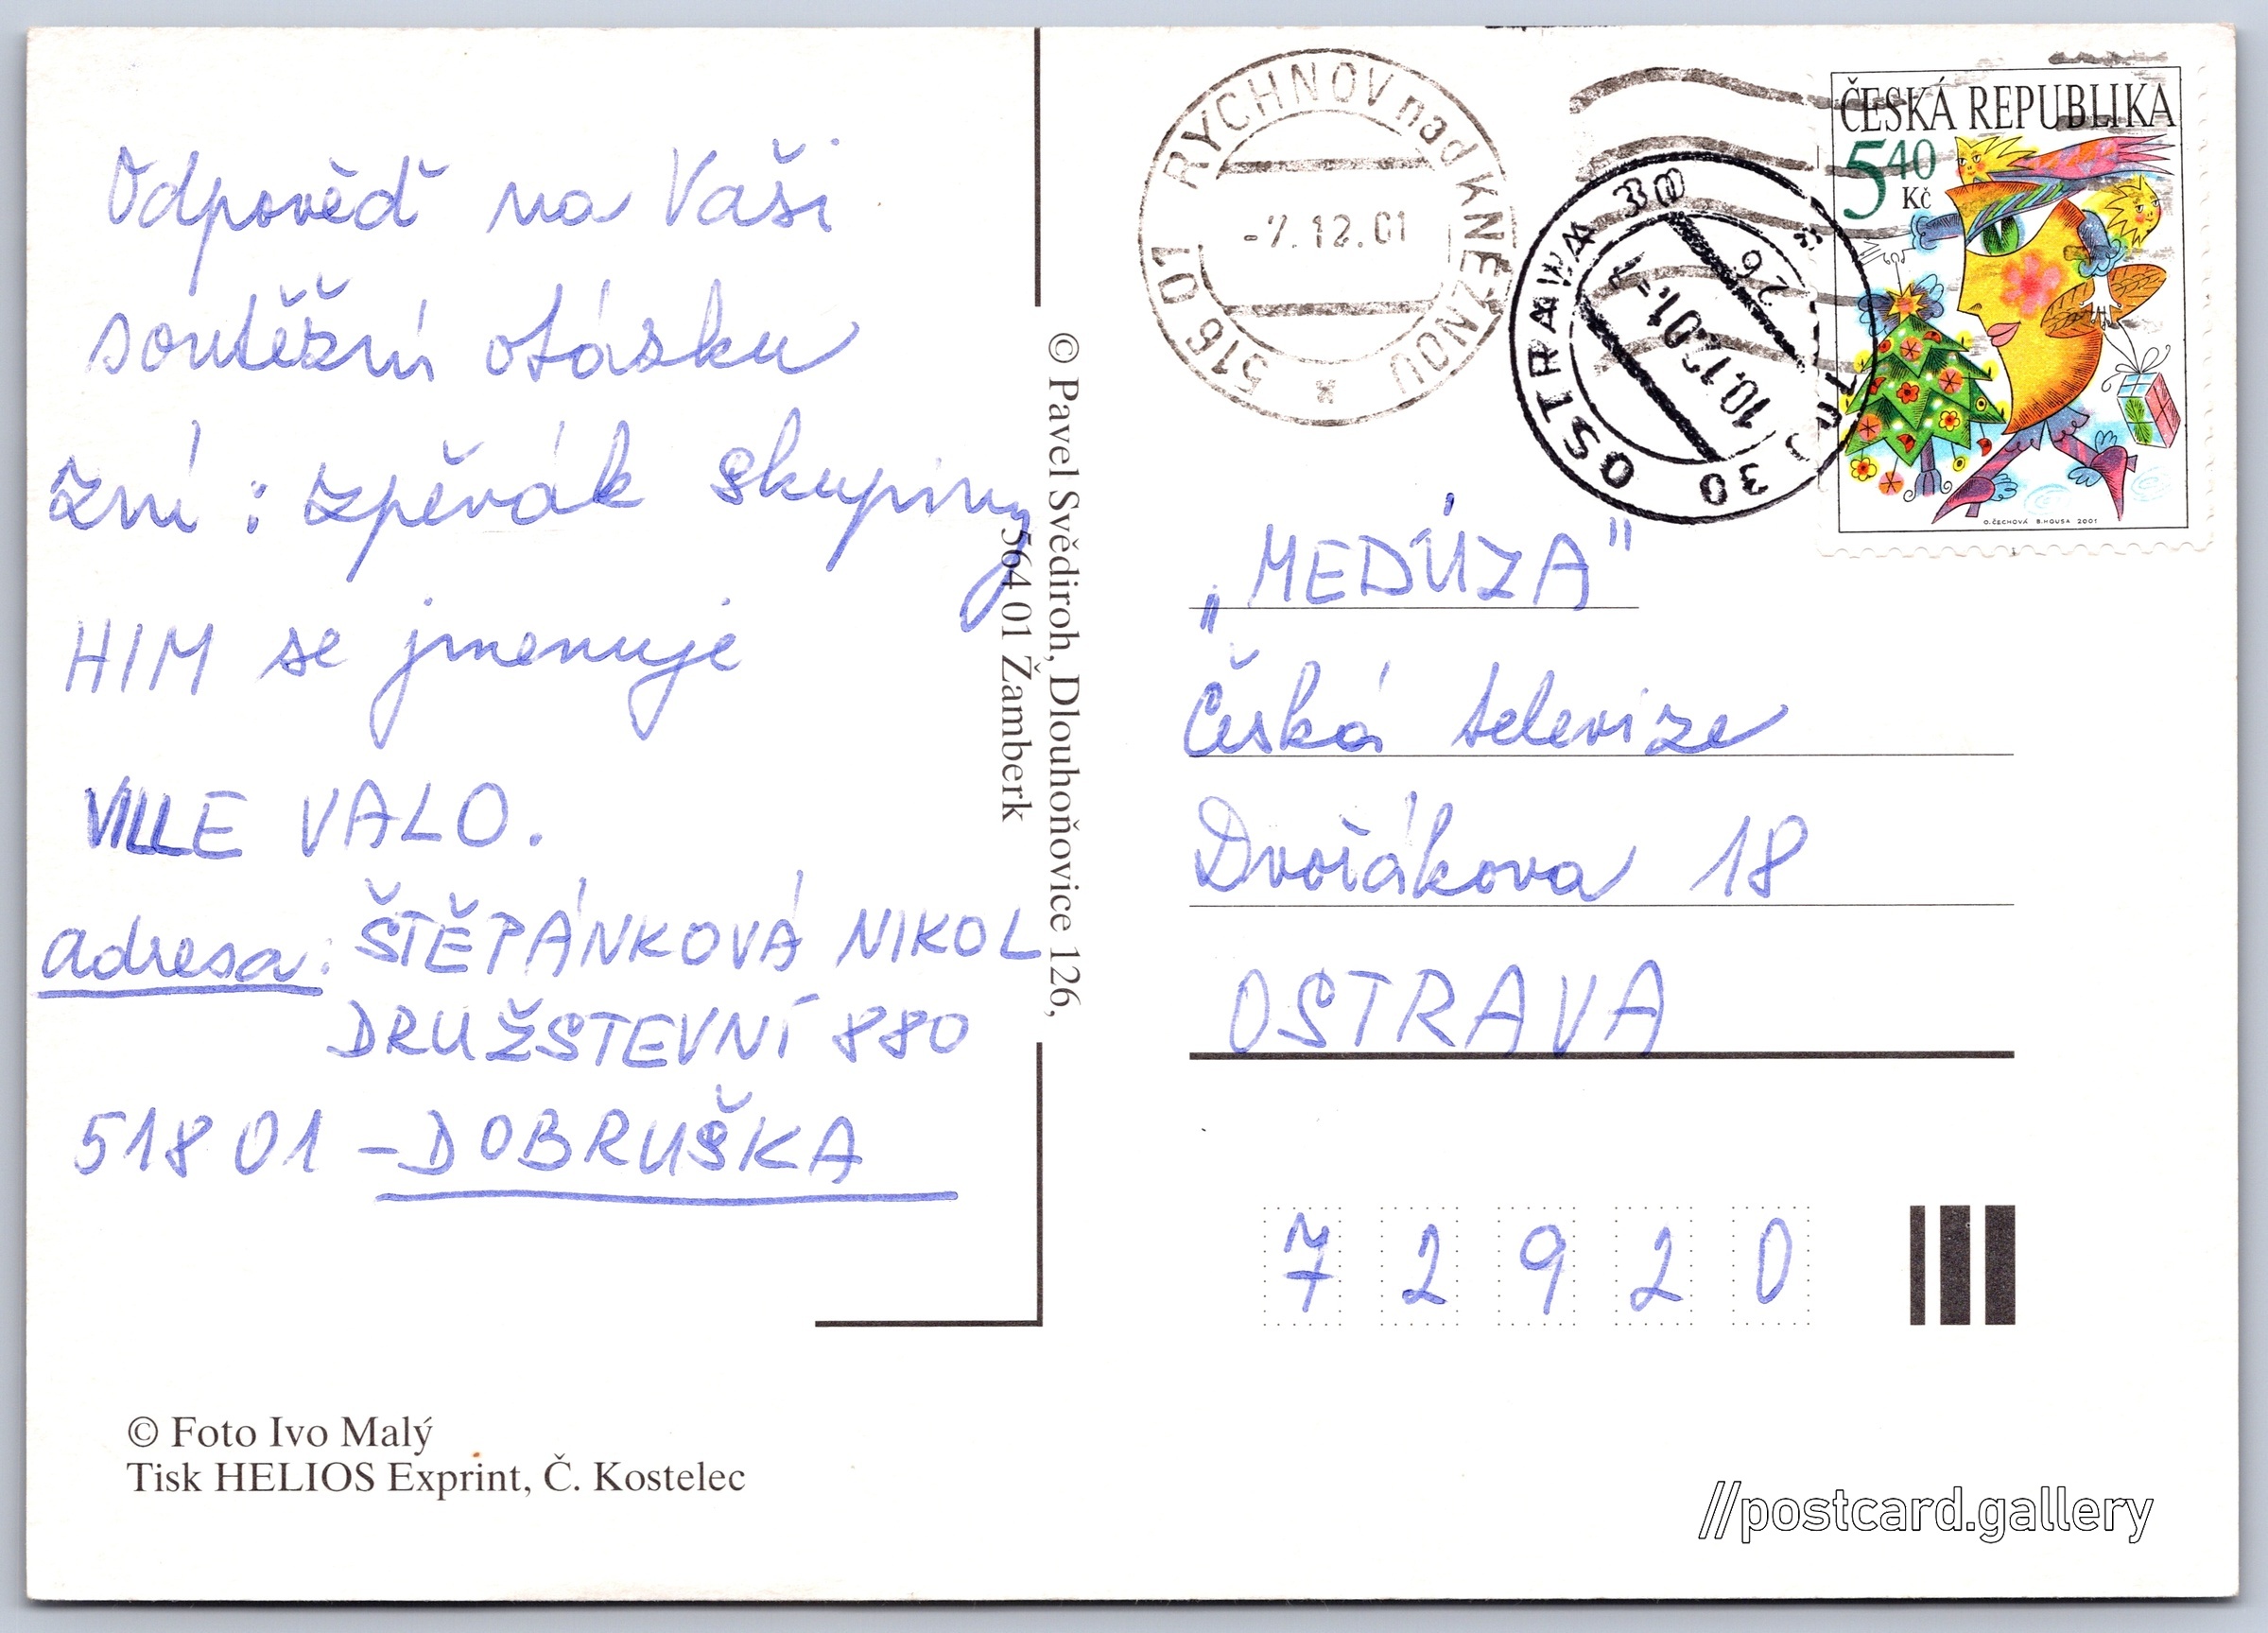 Odpověď na Vaši
soutěžní otázku
zní : zpěvák skupiny
HIM se jmenuje
VILLE VALO.
adresa: ŠTĚPÁNKOVÁ NIKOL
DRUŽSTEVNÍ 880
518 01 – DOBRUŠKA
© Foto Ivo Malý
Tisk HELIOS Exprint, Č. Kostelec
© Pavel Svědiroh, Dlouhoňovice 126,
564 01 Žamberk
516 01 RYCHNOV nad KNĚŽNOU *
-7.12.01
OSTRAVA 30
10.12.01
26
ČESKÁ REPUBLIKA
540
Kč
O.ČECHOVÁ B.HOUSA 2001
„MEDÚZA"
Česká televize
Dvořákova 18
OSTRAVA
72920
//postcard.gallery